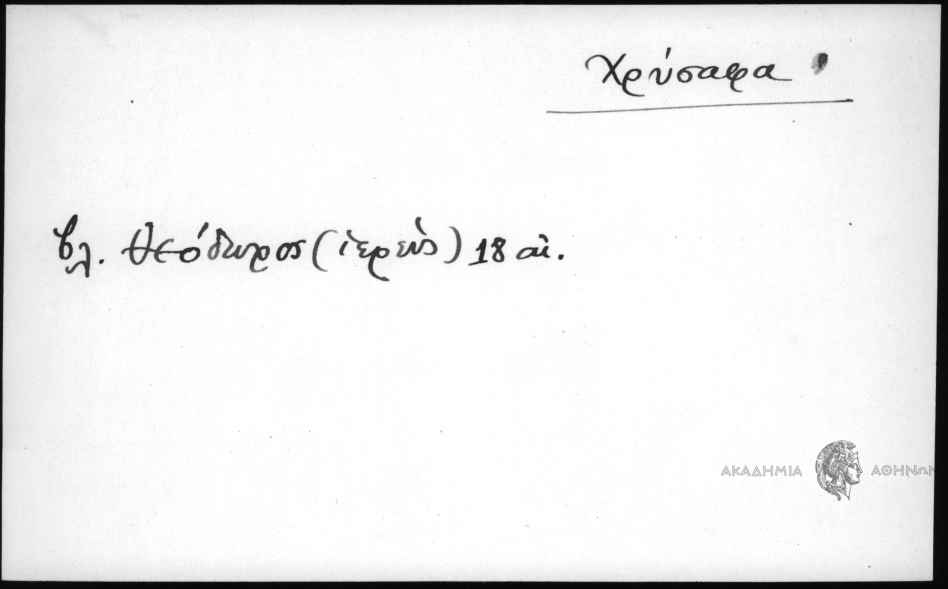 Χρύσαφα
βλ. Θεόδωρος (ἱερεὺς) 18 αἰ.
ΑΚΑΔΗΜΙΑ ΑΘΗΝΩΝ